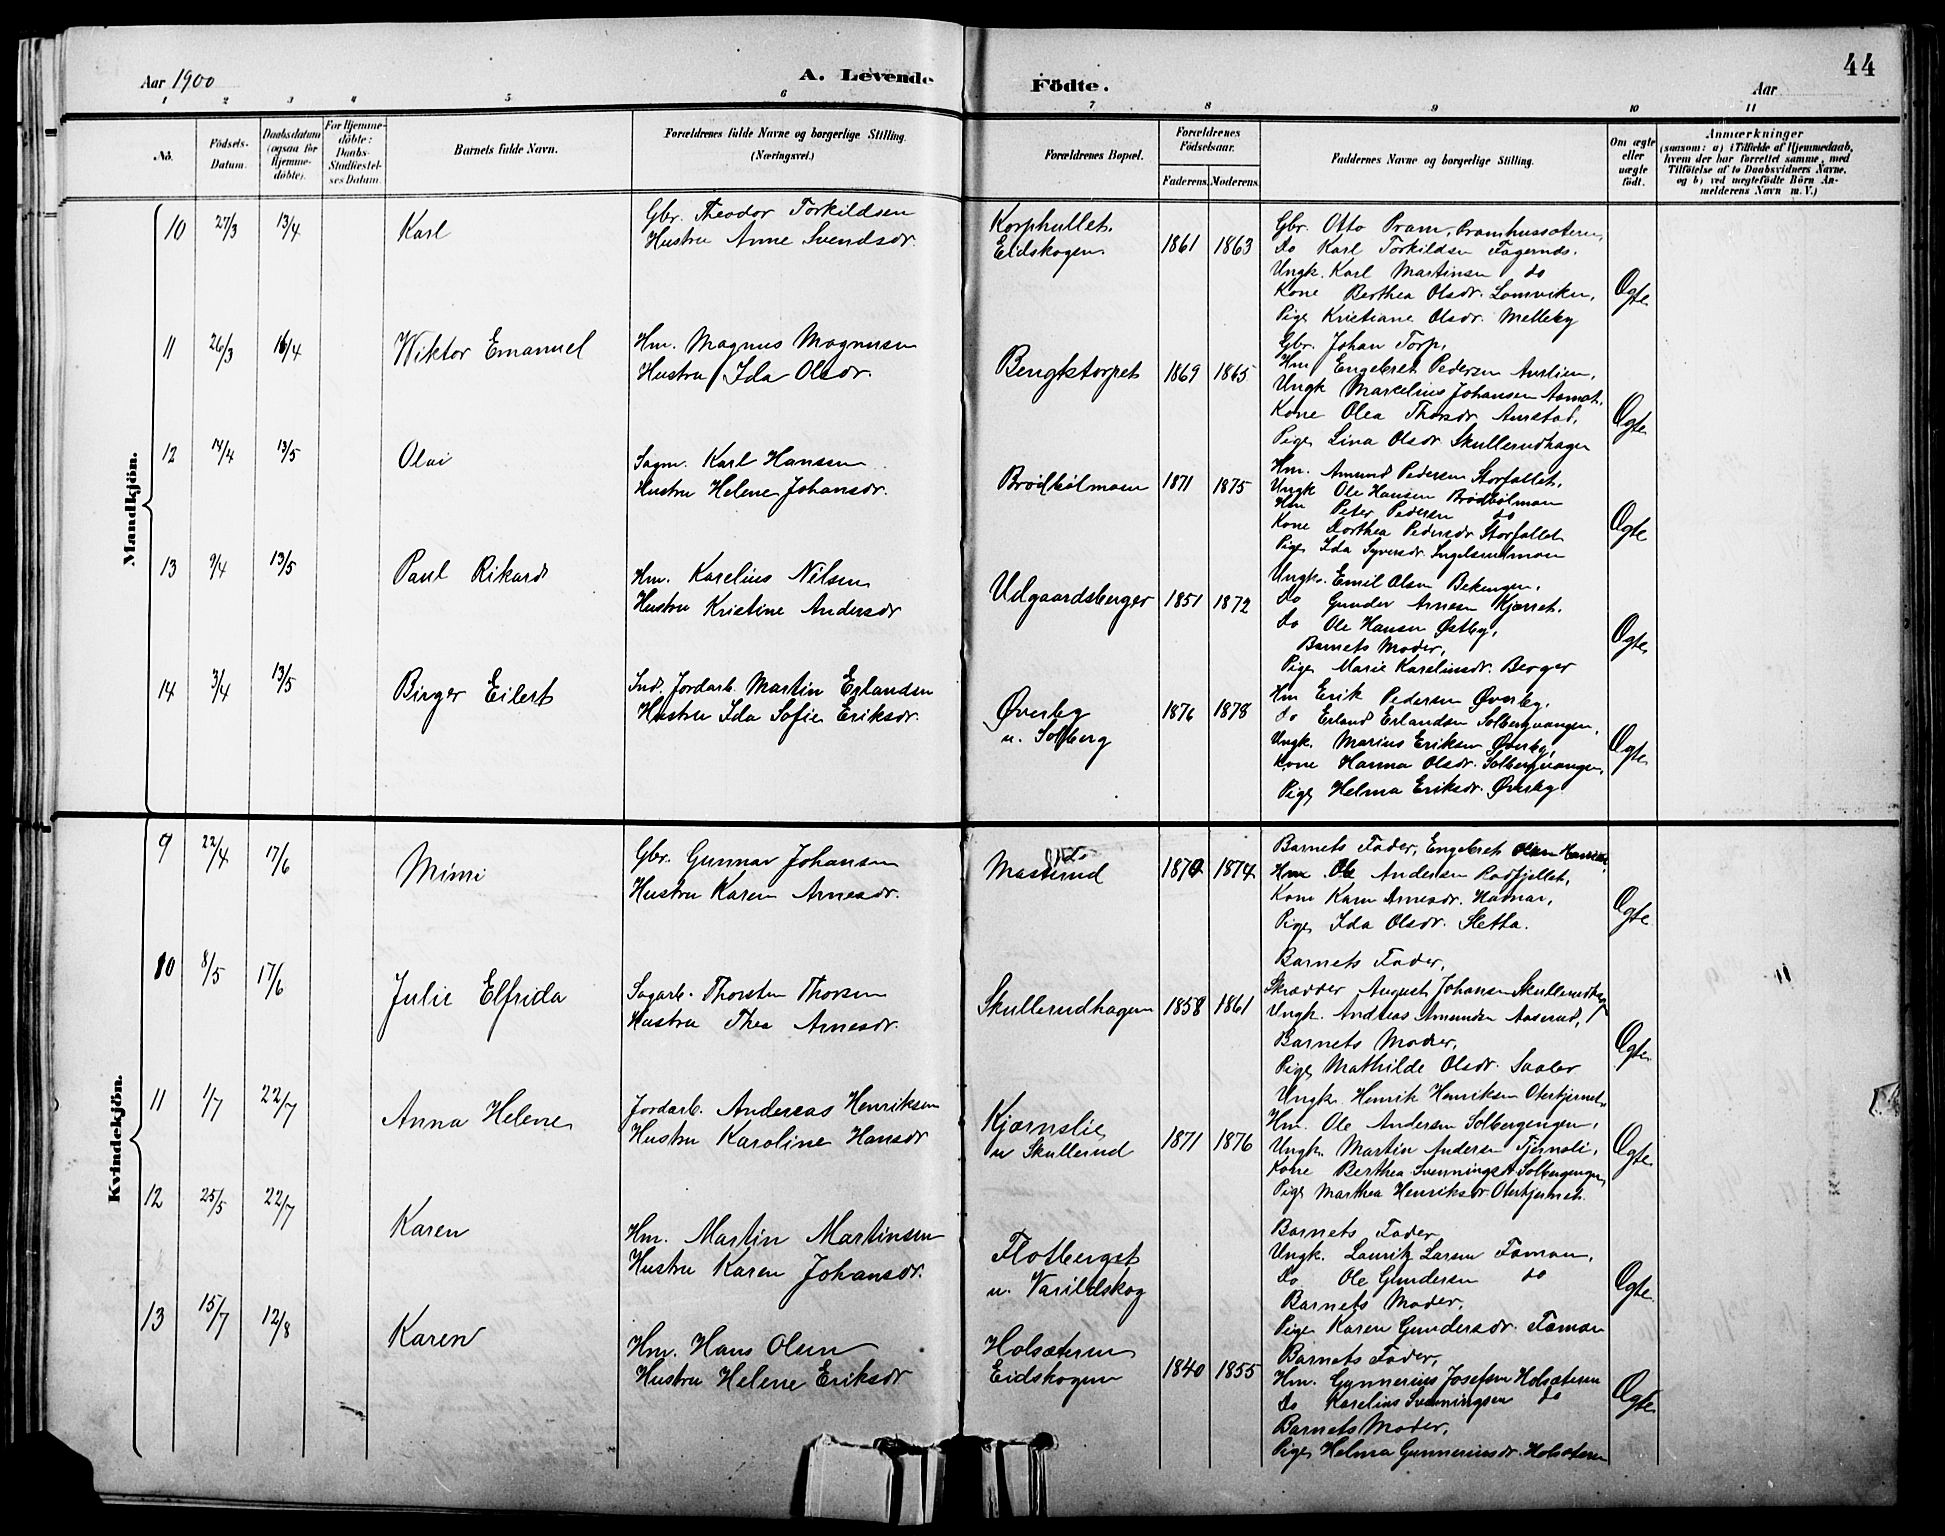 44
Aar 1900
A. Levende
Födte.
Aar
1 2 3 4 5 6 7 8 9 10 11
No.
Födsels-
Datum.
Daabsdatum
(ogsaa for
Hjemme-
döbte).
For Hjemme-
döbte:
Daabs-
Stadfæstel-
ses Datum.
Barnets fulde Navn.
Forældrenes fulde Navne og borgerlige Stilling.
(Næringsvei.)
Forældrenes Bopæl.
Forældrenes
Födselsaar.
Faderens. Moderens.
Faddernes Navne og borgerlige Stilling.
Om ægte
eller
uægte
födt.
Anmærkninger
(saasom: a) i Tilfælde af Hjemmedaab,
hvem der har forrettet samme, med
Tilföielse af to Daabsvidners Navne,
og b) ved uægtefödte Börn An-
melderens Navn m. V.)
Mandkjön.
10 27/3 13/4 Karl
Gbr. Theodor Torkildsen
Hustru Anne Svendsdr.
Korphullet,
Eidskogen
1861 1863
Gbr. Otto Pram, Pramhussæteren,
Do Karl Torkildsen Fagernes.
Ungk. Karl Martinsen do
Kone Berthea Olsdr. Lomviken,
Pige Kristiane Olsdr. Melleby
Ægte
11 26/3 16/4 Wiktor Emanuel
Hm. Magnus Magnusen
Hustru Ida Olsdr.
Bengktorpet
1869 1865
Gbr. Johan Torp,
Hm Engebret Pedersen Aurlien,
Ungk Marcelius Johansen Aamot,
Kone Olea Thorsdr. Aurstad,
Pige Lina Olsdr Skullerudhagen
Ægte
12 14/4 13/5 Olai
Sagm. Karl Hansen
Hustru Helene Johansdr.
Brödbölmoen
1871 1875
Hm. Amund Pedersen Storfallet,
Ungk Ole Hansen Brödbölmoen
Hm Peter Pedersen do
Kone Dorthea Pedersdr Storfallet
Pige Ida Syversdr Ingelsrudmoen
Ægte
13 9/4 13/5 Paul Rikard
Hm. Karelius Nilsen
Hustru Kristine Andersdr
Udgaardsberger
1851 1872
Ungk. Emil Olsen Bekengen,
Do Gunder Arnesen Kjærret.
Do Ole Hansen Østby,
Barnets Moder,
Pige Marie Kareliusdr. Berger
Ægte
14 3/4 13/5 Birger Eilert
Ind. Jordarb. Martin Erlandsen
Hustru Ida Sofie Eriksdr.
Øverby
u. Solberg
1876 1878
Hm Erik Pedersen Øverby,
do Erland Erlandsen Solbergvangen,
Ungk. Marius Eriksen Øverby,
Kone Hanna Olsdr. Solbergvangen,
Pige Helma Eriksdr. Øverby.
Ægte
Kvindekjön.
9 22/4 17/6 Mimi
Gbr. Gunnar Johansen
Hustru Karen Arnesdr.
Masterud
1874
Barnets Fader, Engebret Olsen Hamar,
Hm Ole Andersen Rødfjellet,
Kone Karen Arnesdr. Hamar,
Pige Ida Olsdr. Sletta.
Ægte
10 8/5 17/6 Julie Elfrida
Sagarb. Thorsten Thorsen
Hustru Thea Arnesdr.
Skullerudhagen
1858 1861
Barnets Fader,
Skrædder August Johansen Skullerudhagen
Ungk. Andreas Amundsen Aaserud,
Barnets Moder,
Pige Mathilde Olsdr. Saaler
Ægte
11 1/7 22/7 Anna Helene
Jordarb. Andreas Henriksen
Hustru Karoline Hansdr
Kjærnslie
u Skullerud
1871 1876
Ungk. Henrik Henriksen Otertjernet,
Hm. Ole Andersen Solbergengen,
Ungk. Martin Andersen Tjernsli,
Kone Berthea Svenningsd Solbergengen,
Pige Marthea Henriksdr Otertjernet
Ægte
12 25/5 22/7 Karen
Hm. Martin Martinsen
Hustru Karen Johansdr.
Flotberget
u. Varildskog
Barnets Fader
Ungk. Lauritz Larsen Toman,
Do Ole Gundersen do
Barnets Moder,
Pige Karen Gundersdr. Toman
Ægte
13 15/7 12/8 Karen
Hm. Hans Olsen
Hustru Helene Eriksdr
Holsæteren
Eidskogen
1840 1855
Barnets Fader,
Hm. Gunnerius Josefsen Holsæteren
Do Karelius Svenningsen do
Barnets Moder,
Pige Helma Gunneriusdr. Holsæteren
Ægte